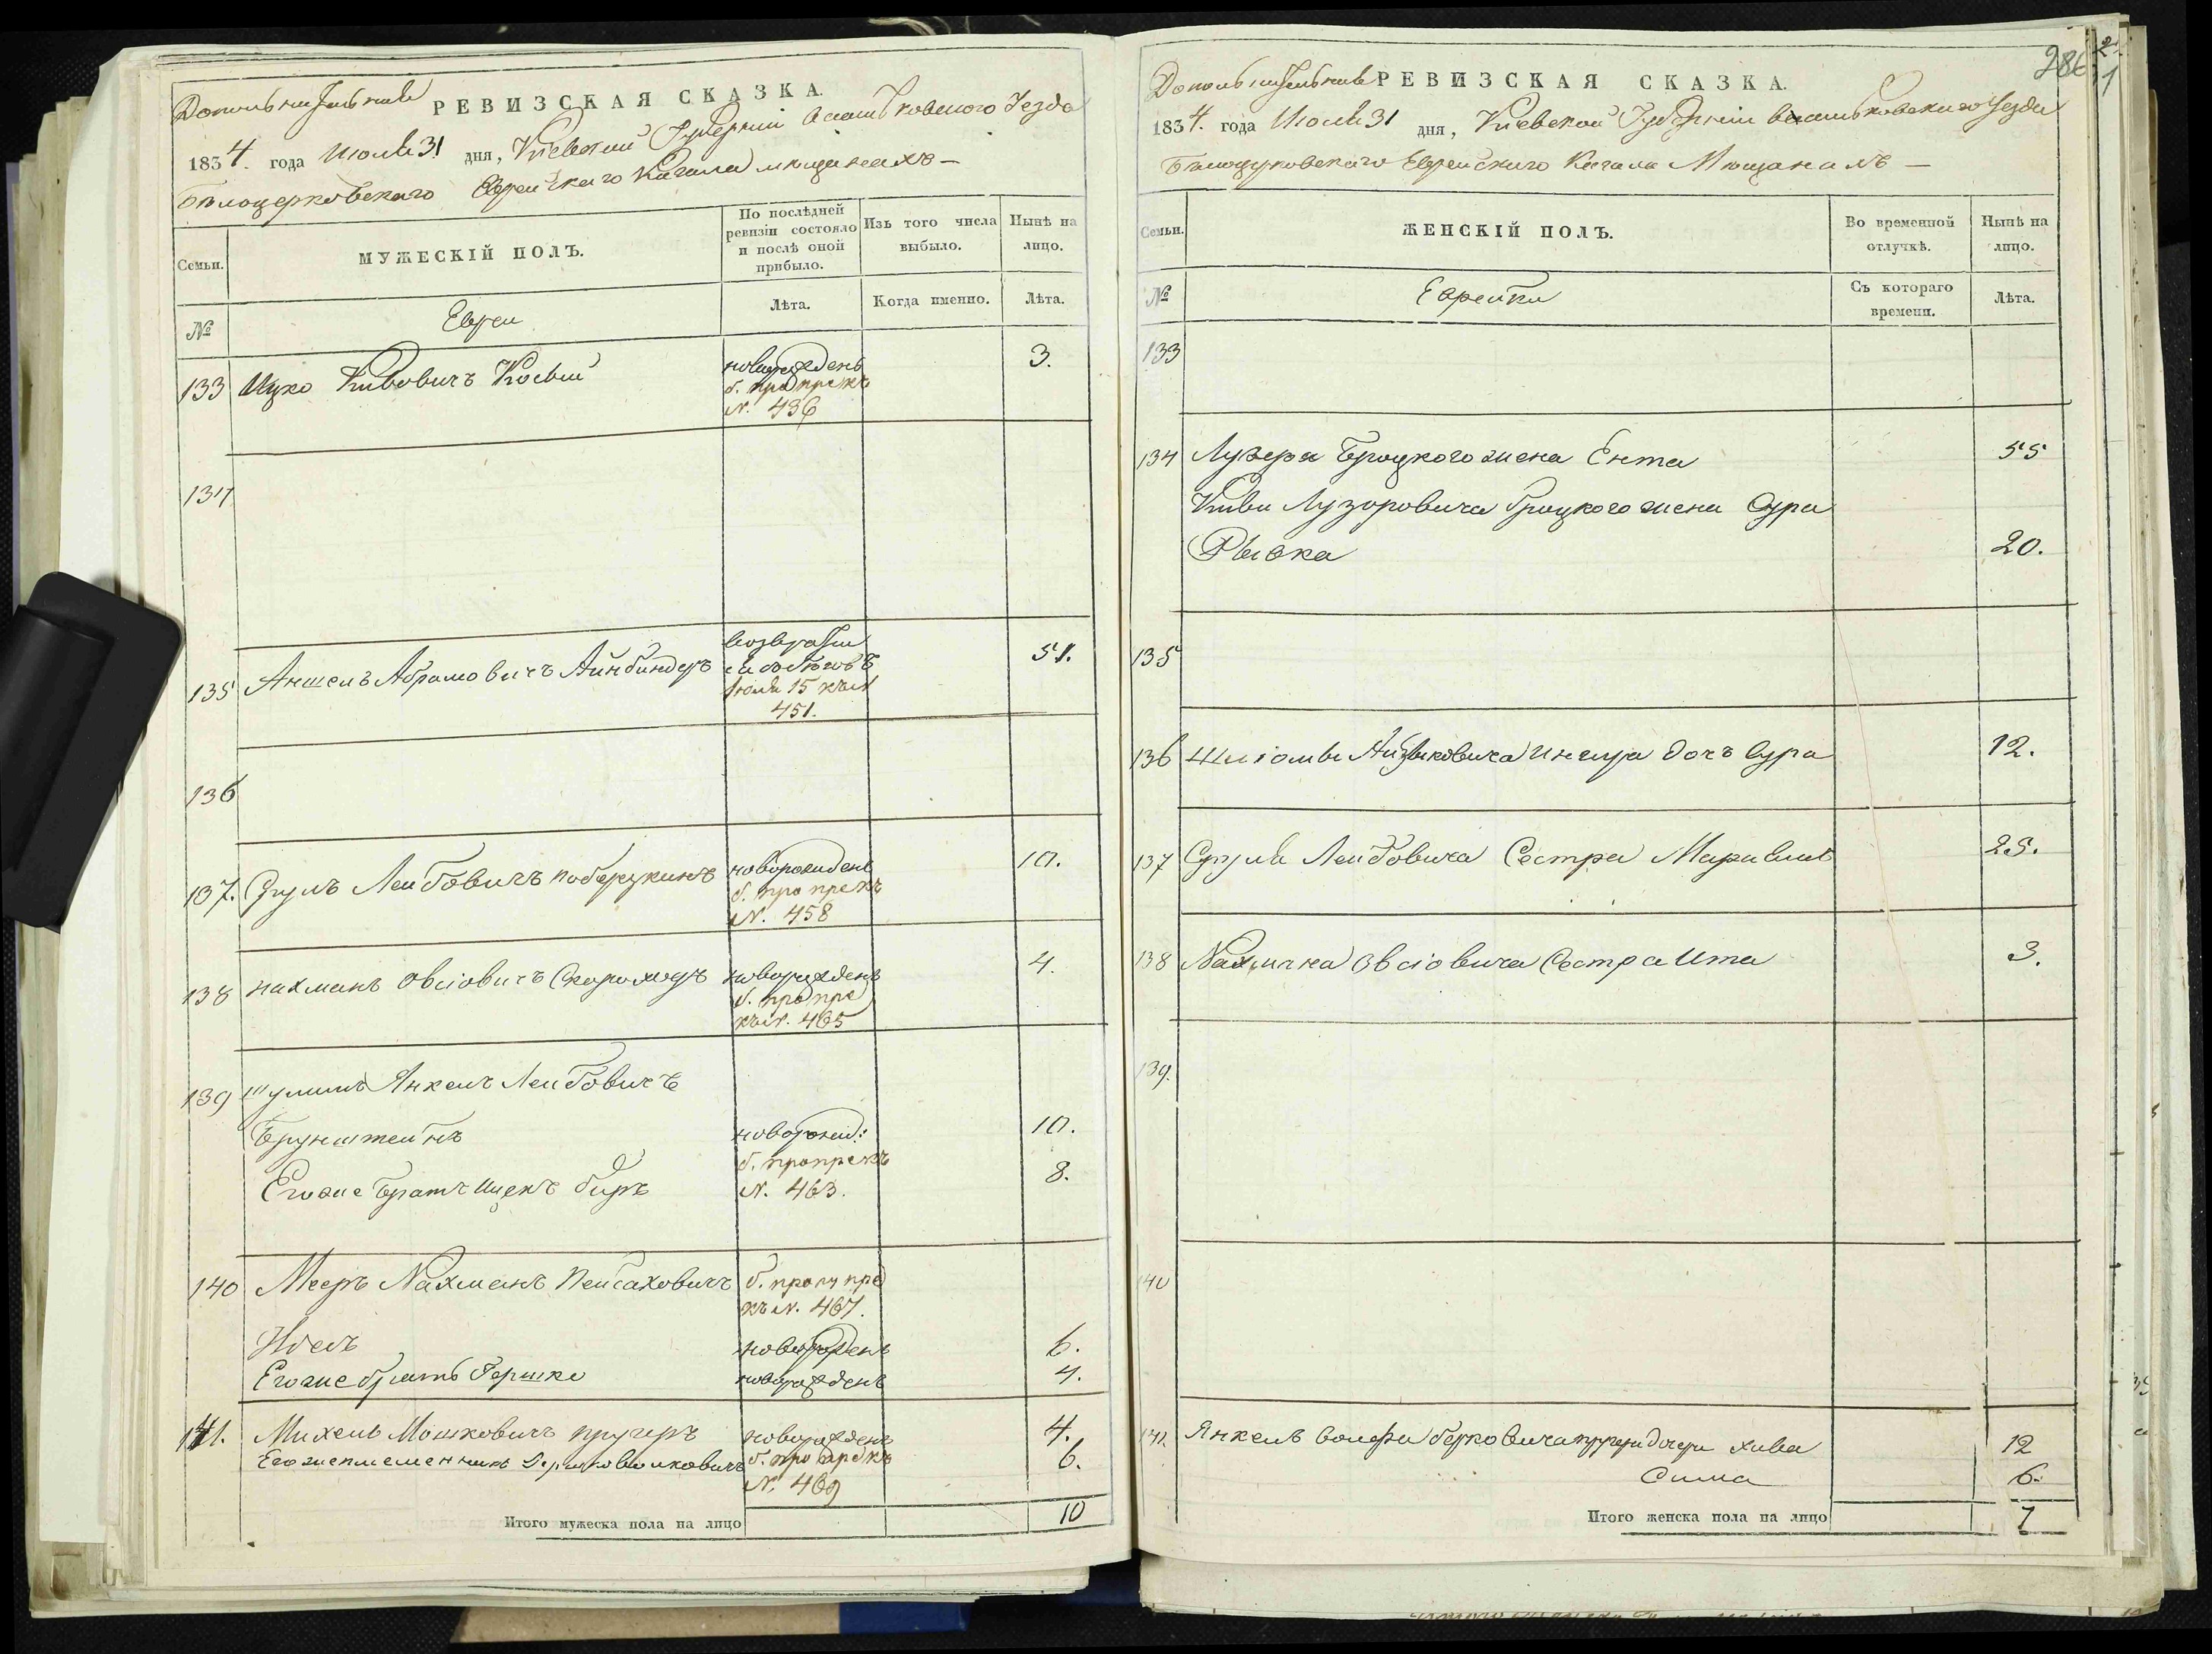 Дополнительная РЕВИЗСКАЯ СКАЗКА.
1834. года Июля 31 дня, Киевской Губернии Васильковского Уезда
Белоцерковского Еврейского Кагала мещанахъ —
Семьи.
МУЖЕСКІЙ ПОЛЪ.
По послѣдней ревизіи состояло и послѣ оной прибыло.
Изъ того числа выбыло.
Нынѣ на лицо.
№
Евреи
Лѣта.
Когда именно.
Лѣта.
133 Ицко Кивовичъ новорожденъ 3.
б. пропре къ
N. 436
134
135 Аншель Абрамовичъ Айнбиндеръ возврати 51.
Июля 15 къ N
451.
136
137. Сруль Лейбовичъ новорожденъ 10.
б. пропре къ
N. 458
138 Нахманъ Овсіовичъ Скороходъ новорожденъ 4.
б. пропре
къ N. 465
139 Шулимъ Янкель Лейбовичъ
Брунштейнъ новорожд: 10.
б. пропре къ
Его же братъ Ицекъ Беръ N. 463. 8.
140 Мееръ Нахманъ Пейсаховичъ б. пропу пре
къ N. 467.
новорожденъ 6.
Его же братъ Гершко новорожденъ 4.
141. Михель Мошковичъ новорожденъ 4.
Его же племенникъ б. пропре къ 6.
N. 469
Итого мужеска пола на лицо 10
286
Дополнительная РЕВИЗСКАЯ СКАЗКА.
1834. года Июля 31 дня, Киевской Губерніи Васильковскаго Уезда
Белоцерковскаго Еврейскаго Кагала Мещанахъ —
Семьи.
ЖЕНСКІЙ ПОЛЪ.
Во временной отлучкѣ.
Нынѣ на лицо.
№
Еврейки
Съ котораго времени.
Лѣта.
133
134 Лузера Броцкого жена Ента 55
Киви Лузоровича Броцкого жена Сура
Рывка 20.
135
136 Шліомы Айзыковича дочь Сура 12.
137 Сруля Лейбовича Сестра 25.
138 Нахмана Овсіовича Сестра Ита 3.
139.
140
141. Янкель Вольфа Берковича дочери Хива 12
Сима 6.
Итого женска пола на лицо 7